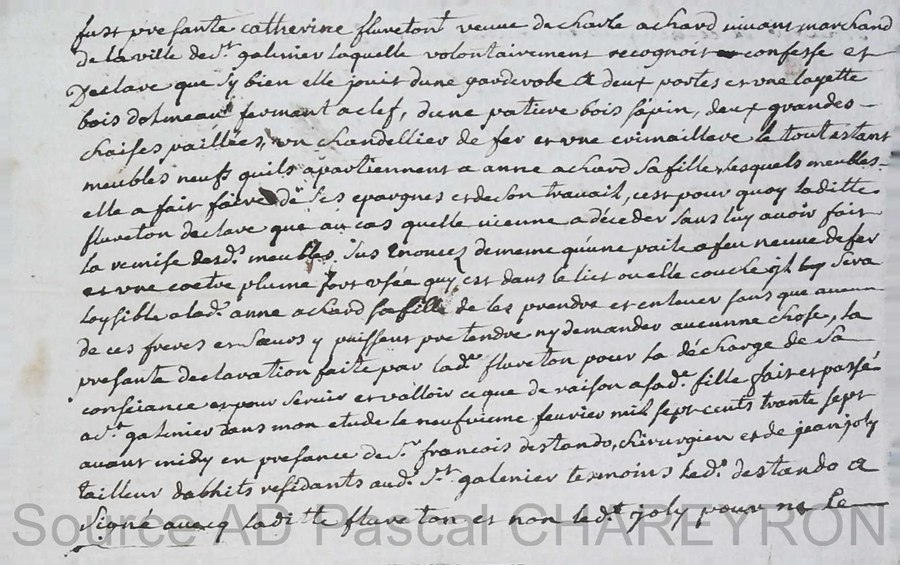 fust presante catherine flureton veuve de charle achard vivant marchand
de la ville de st galmier laquelle volontairement recognoit confesse et
Declare que sy bien elle jouit dune garderobe a deux portes et une layette
bois dormeaux fermant a clef, dune patiere bois sapin, deux grandes
chaises paillées, un chandellier de fer et une crimaillere le tout estant
meubles neufs quils apartiennent a anne achard sa fille, lesquels meubles
elle a fait faire de ses epargnes et de son travail, cest pour quoy laditte
flureton declare que au cas quelle vienne a deceder sans luy avoir fait
la remise desd. meubles sus enoncez de meme qu'une paile a feu neuve de fer
et une coetre plume fort usée quy est dans le lict ou elle couche il sera
loysible a lad. anne achard sa fille de les prendre et enlever sans que aucun
de ces freres et sœurs y puissent pretendre ny demander aucunne chose, la
presante declaration faite par lade. flureton pour la décharge de sa
consciance et pour servir et valloir ce que de raison a sade. fille fait et passé
a st. galmier dans mon etude le neufvieme fevrier mil sept cents trante sept
avant midy en presance de sr. francois destando, chirurgien et de jean joly
tailleur dabhits residants aud. st. galmier tesmoins led. destando a
signé avecq laditte flureton et non led.t joly pour ne le
Source AD Pascal CHAREYRON